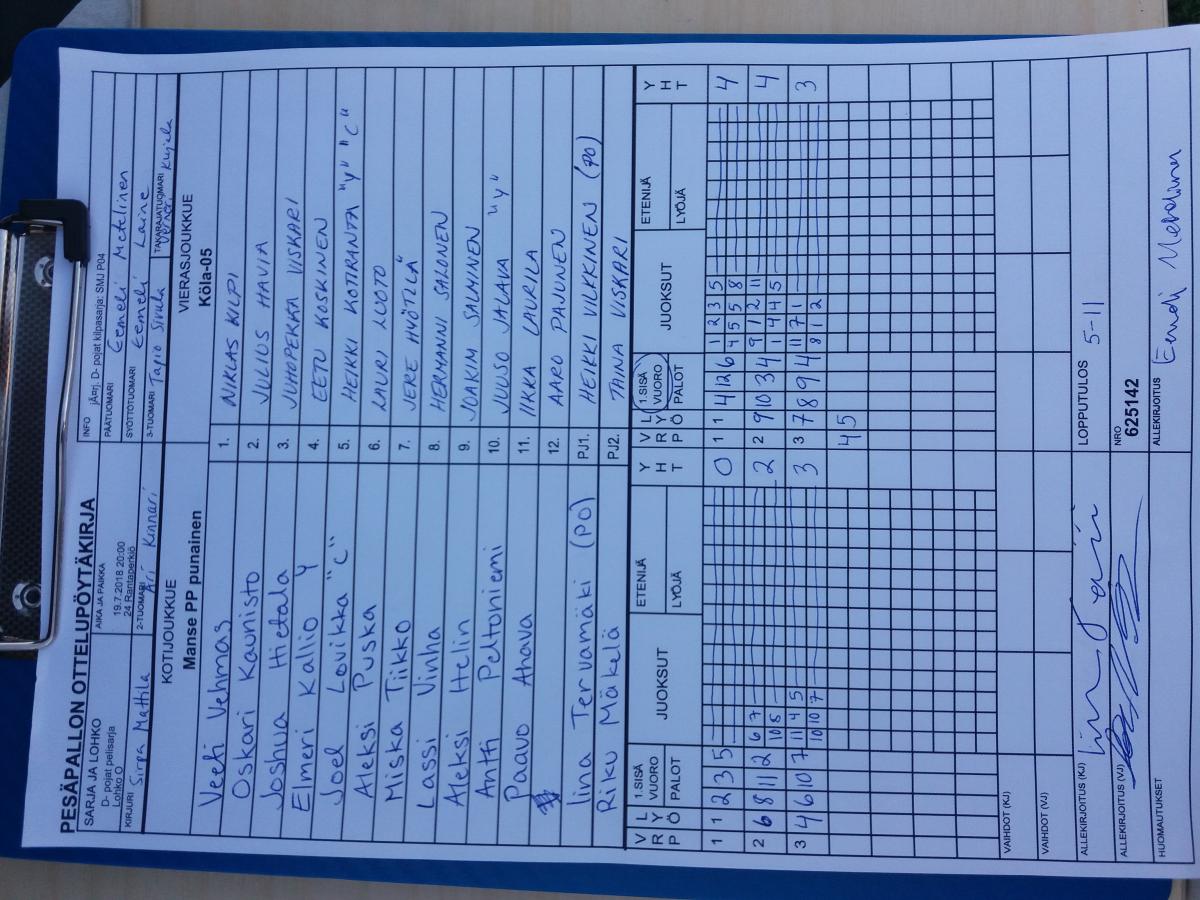 PESÄPALLON OTTELUPÖYTÄKIRJA
SARJA JA LOHKO
D- pojat pelisarja
Lohko O
AIKA JA PAIKKA
19.7.2018 20:00
24 Rantaperkiö
INFO
jÄ¤rj. D- pojat kilpasarja: SMJ P04
PÄÄTUOMARI
Eemeli Metelinen
KIRJURI
Sirpa Mattila
2-TUOMARI
Ari Kinnari
SYÖTTÖTUOMARI
Eemeli Laine
3-TUOMARI
Tapio Sivula
TAKARAJATUOMARI
KOTIJOUKKUE
Manse PP punainen
VIERASJOUKKUE
Köla-05
Veeti Vehmas
1. NIKLAS KILPI
Oskari Kaunisto
2. JULIUS HAVIA
Joshua Hietala
3. JUHOPEKKA VISKARI
Elmeri Kallio Y
4. EETU KOSKINEN
Joel Lovikka "C"
5. HEIKKI KOTIRANTA "Y" "C"
Aleksi Puska
6. LAURI LUOTO
Miska Tiikko
7. JERE HYÖTILÄ
Lassi Vinha
8. HERMANNI SALONEN
Aleksi Helin
9. JOAKIM SALMINEN
Antti Peltoniemi
10. JUUSO JALAVA "Y"
Paavo Ahava
11. IIKKA LAURILA
12. AARO PAJUNEN
Iina Tervamäki (PO)
PJ1. HEIKKI VILKKINEN (PO)
Riku Mäkelä
PJ2. TAINA VISKARI
V R P
L Y Ö
1.SISÄ VUORO PALOT
JUOKSUT
ETENIJÄ
LYÖJÄ
Y H T
V R P
L Y Ö
1.SISÄ VUORO PALOT
JUOKSUT
ETENIJÄ
LYÖJÄ
Y H T
1 1 2 3 5 0
1 1 4 12 6 1 2 3 5 4
4 5 5 8
2 6 8 11 2 6 7 2
10 8
2 9 10 3 4 9 1 2 11 4
1 4 4 5
3 4 6 10 7 11 4 5 3
10 10 7
3 7 8 9 4 11 7 1 3
8 1 2
4 5
VAIHDOT (KJ)
VAIHDOT (VJ)
ALLEKIRJOITUS (KJ)
LOPPUTULOS
5-11
ALLEKIRJOITUS (VJ)
NRO
625142
HUOMAUTUKSET
ALLEKIRJOITUS
Eemeli Metelinen